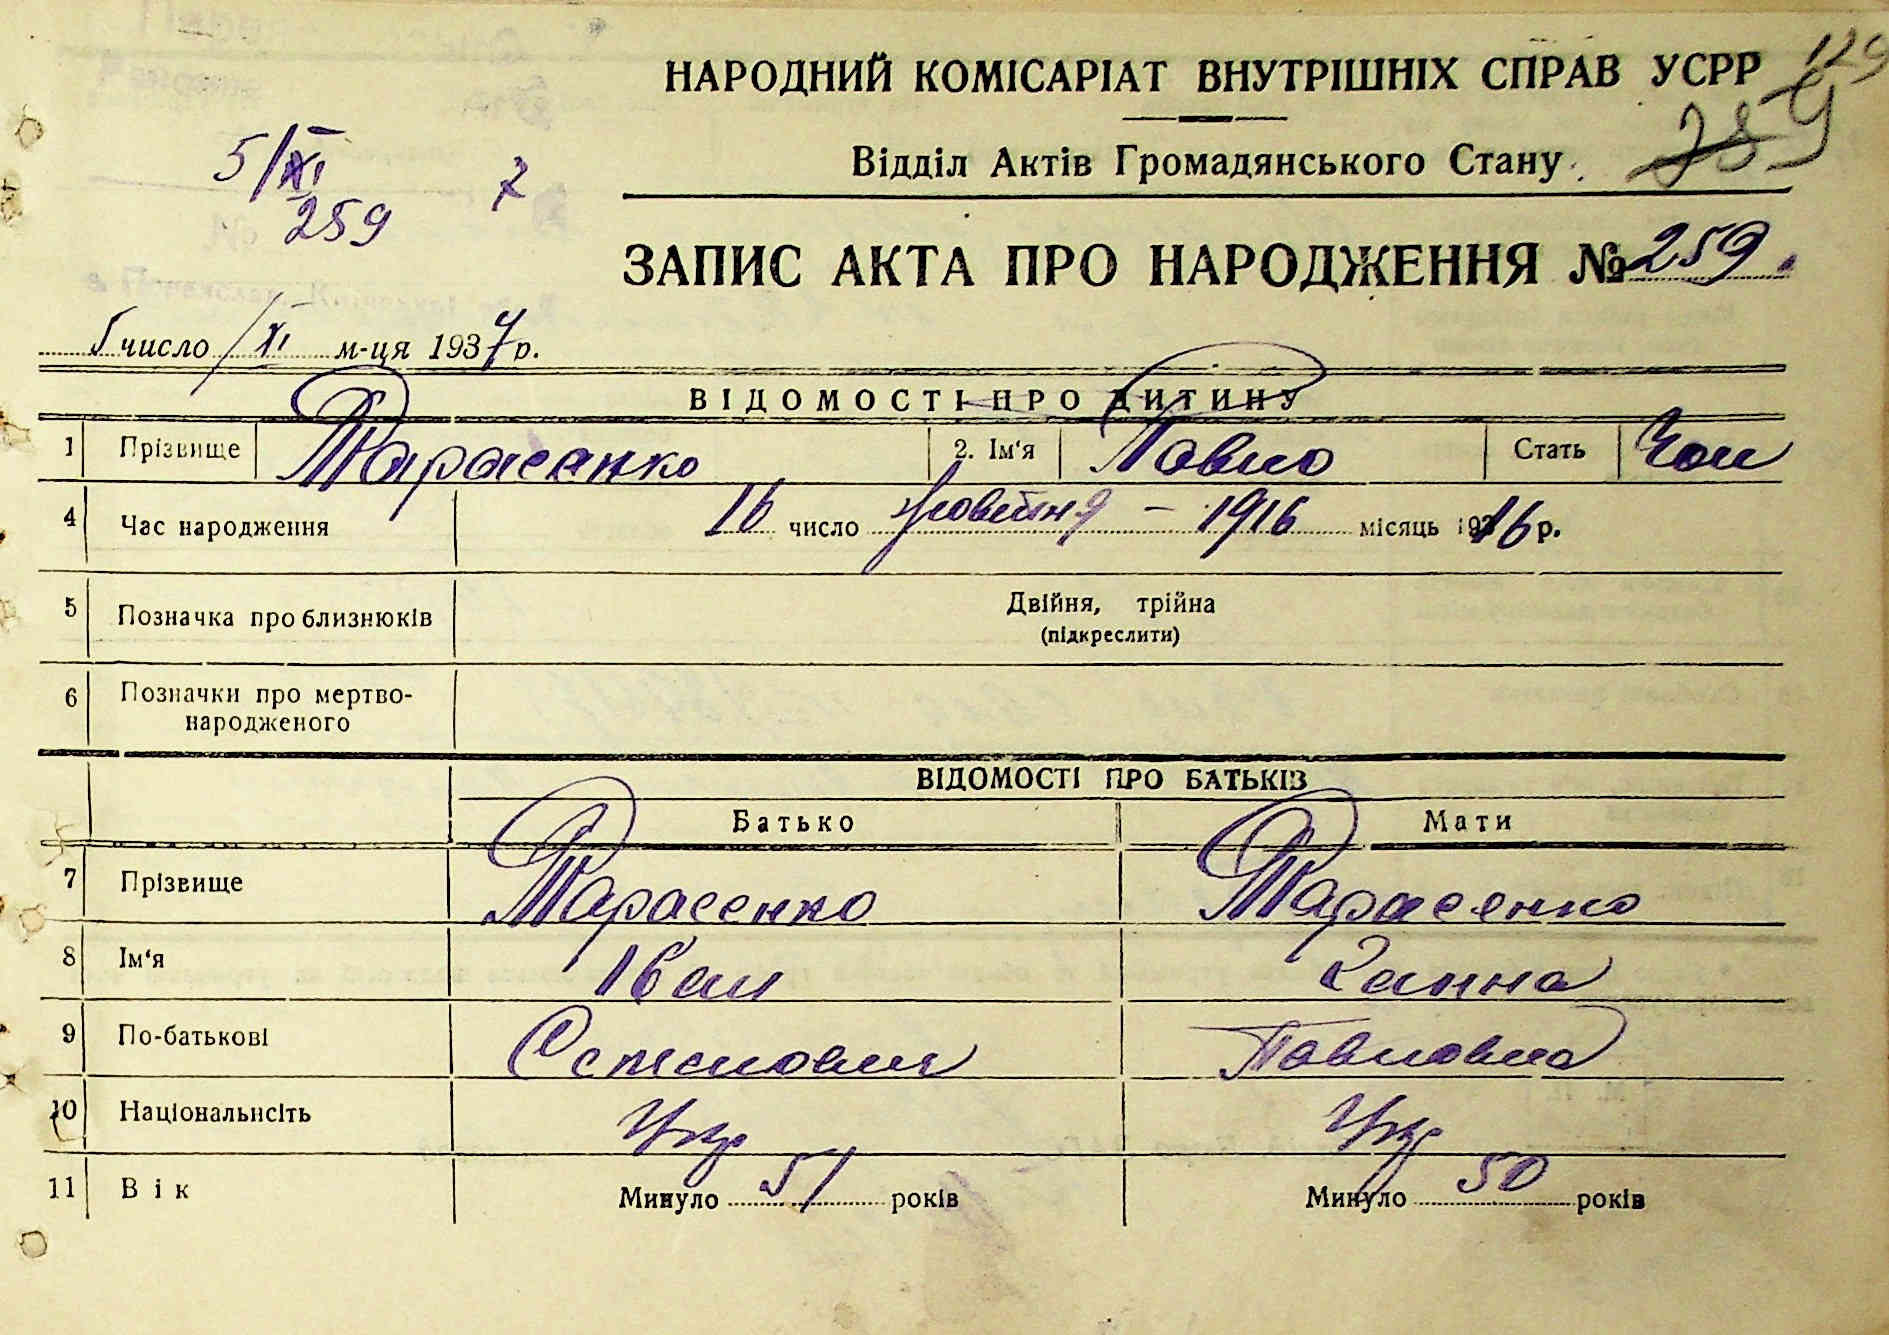 129
НАРОДНИЙ КОМІСАРІАТ ВНУТРІШНІХ СПРАВ УСРР
259
Відділ Актів Громадянського Стану
5/XI
259
ЗАПИС АКТА ПРО НАРОДЖЕННЯ № 259.
5 число /XI м-ця 1937 р.
ВІДОМОСТІ ПРО ДИТИНУ
1 Прізвище Тарасенко 2. Ім'я Павло Стать Чол
4 Час народження 16 число жовтня - 1916 місяць 1916 р.
5 Позначка про близнюків Двійня, трійна
(підкреслити)
6 Позначки про мертво-
народженого
ВІДОМОСТІ ПРО БАТЬКІВ
Батько Мати
7 Прізвище Тарасенко Тарасенко
8 Ім'я Іван Ганна
9 По-батькові Остапович Павловна
10 Національність Укр Укр
11 Вік Минуло 51 років Минуло 50 років